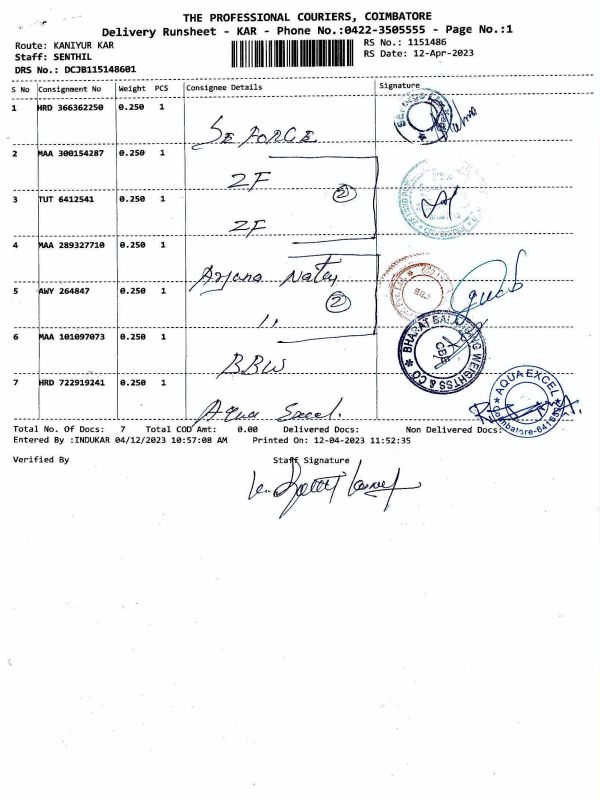 THE PROFESSIONAL COURIERS, COIMBATORE
Delivery Runsheet - KAR - Phone No.:0422-3505555 - Page No.:1
Route: KANIYUR KAR
RS No.: 1151486
Staff: SENTHIL
RS Date: 12-Apr-2023
DRS No.: DCJB115148601
S No Consignment No Weight PCS Consignee Details Signature
1 HRD 366362250 0.250 1
SE FORGE
2 MAA 300154287 0.250 1
ZF
2
3 TUT 6412541 0.250 1
ZF
4 MAA 289327710 0.250 1
Arjuna
5 AWY 264847 0.250 1
2
CBE
,,
6 MAA 101097073 0.250 1
BHARAT BALAJI WEIGHTSS & CO
CBE
BBW
7 HRD 722919241 0.250 1
AQUA EXCEL
Coimbatore-641659
Aqua Excel.
Total No. Of Docs: 7 Total COD Amt: 0.00 Delivered Docs: Non Delivered Docs:
Entered By :INDUKAR 04/12/2023 10:57:08 AM Printed On: 12-04-2023 11:52:35
Verified By Staff Signature